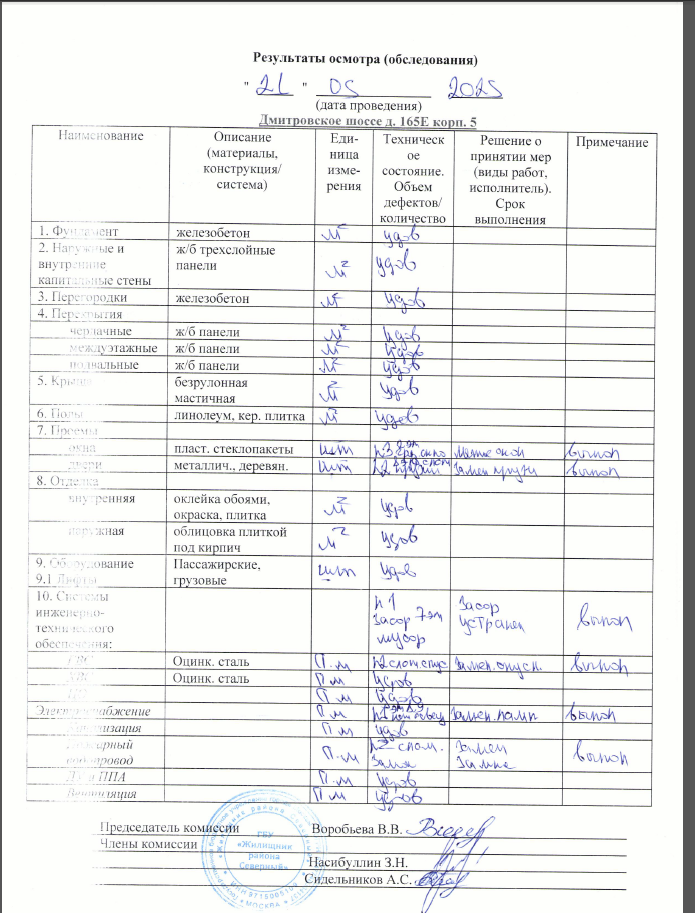 Результаты осмотра (обследования)
" 21 " 05 2025
(дата проведения)
Дмитровское шоссе д. 165Е корп. 5
Наименование Описание (материалы, конструкция/ система) Еди-ница изме-рения Техническ ое состояние. Объем дефектов/ количество Решение о принятии мер (виды работ, исполнитель). Срок выполнения Примечание
1. Фундамент железобетон м² удов
2. Наружные и внутренние капитальные стены ж/б трехслойные панели м² удов
3. Перегородки железобетон м² удов
4. Перекрытия
чердачные ж/б панели м² удов
междуэтажные ж/б панели м² удов
подвальные ж/б панели м² удов
5. Крыша безрулонная мастичная м² удов
6. Полы линолеум, кер. плитка м² удов
7. Проемы
окна пласт. стеклопакеты шт выпол
двери металлич., деревян. шт выпол
8. Отделка
внутренняя оклейка обоями, окраска, плитка м² удов
наружная облицовка плиткой под кирпич м² удов
9. Оборудование
9.1 Лифты Пассажирские, грузовые шт удов
10. Системы инженерно-технического обеспечения: п 1 Засор 7эт мусор Засор устранен выпол
ГВС Оцинк. сталь п.м выпол
ХВС Оцинк. сталь п м удов
п м удов
Электроснабжение п м выпол
Канализация п м удов
Пожарный водопровод п.м выпол
ДУ и ППА п м удов
Вентиляция п м удов
Председатель комиссии Воробьева В.В.
Члены комиссии
Насибуллин З.Н.
Сидельников А.С.
ГБУ
«Жилищник
района
Северный»
МОСКВА